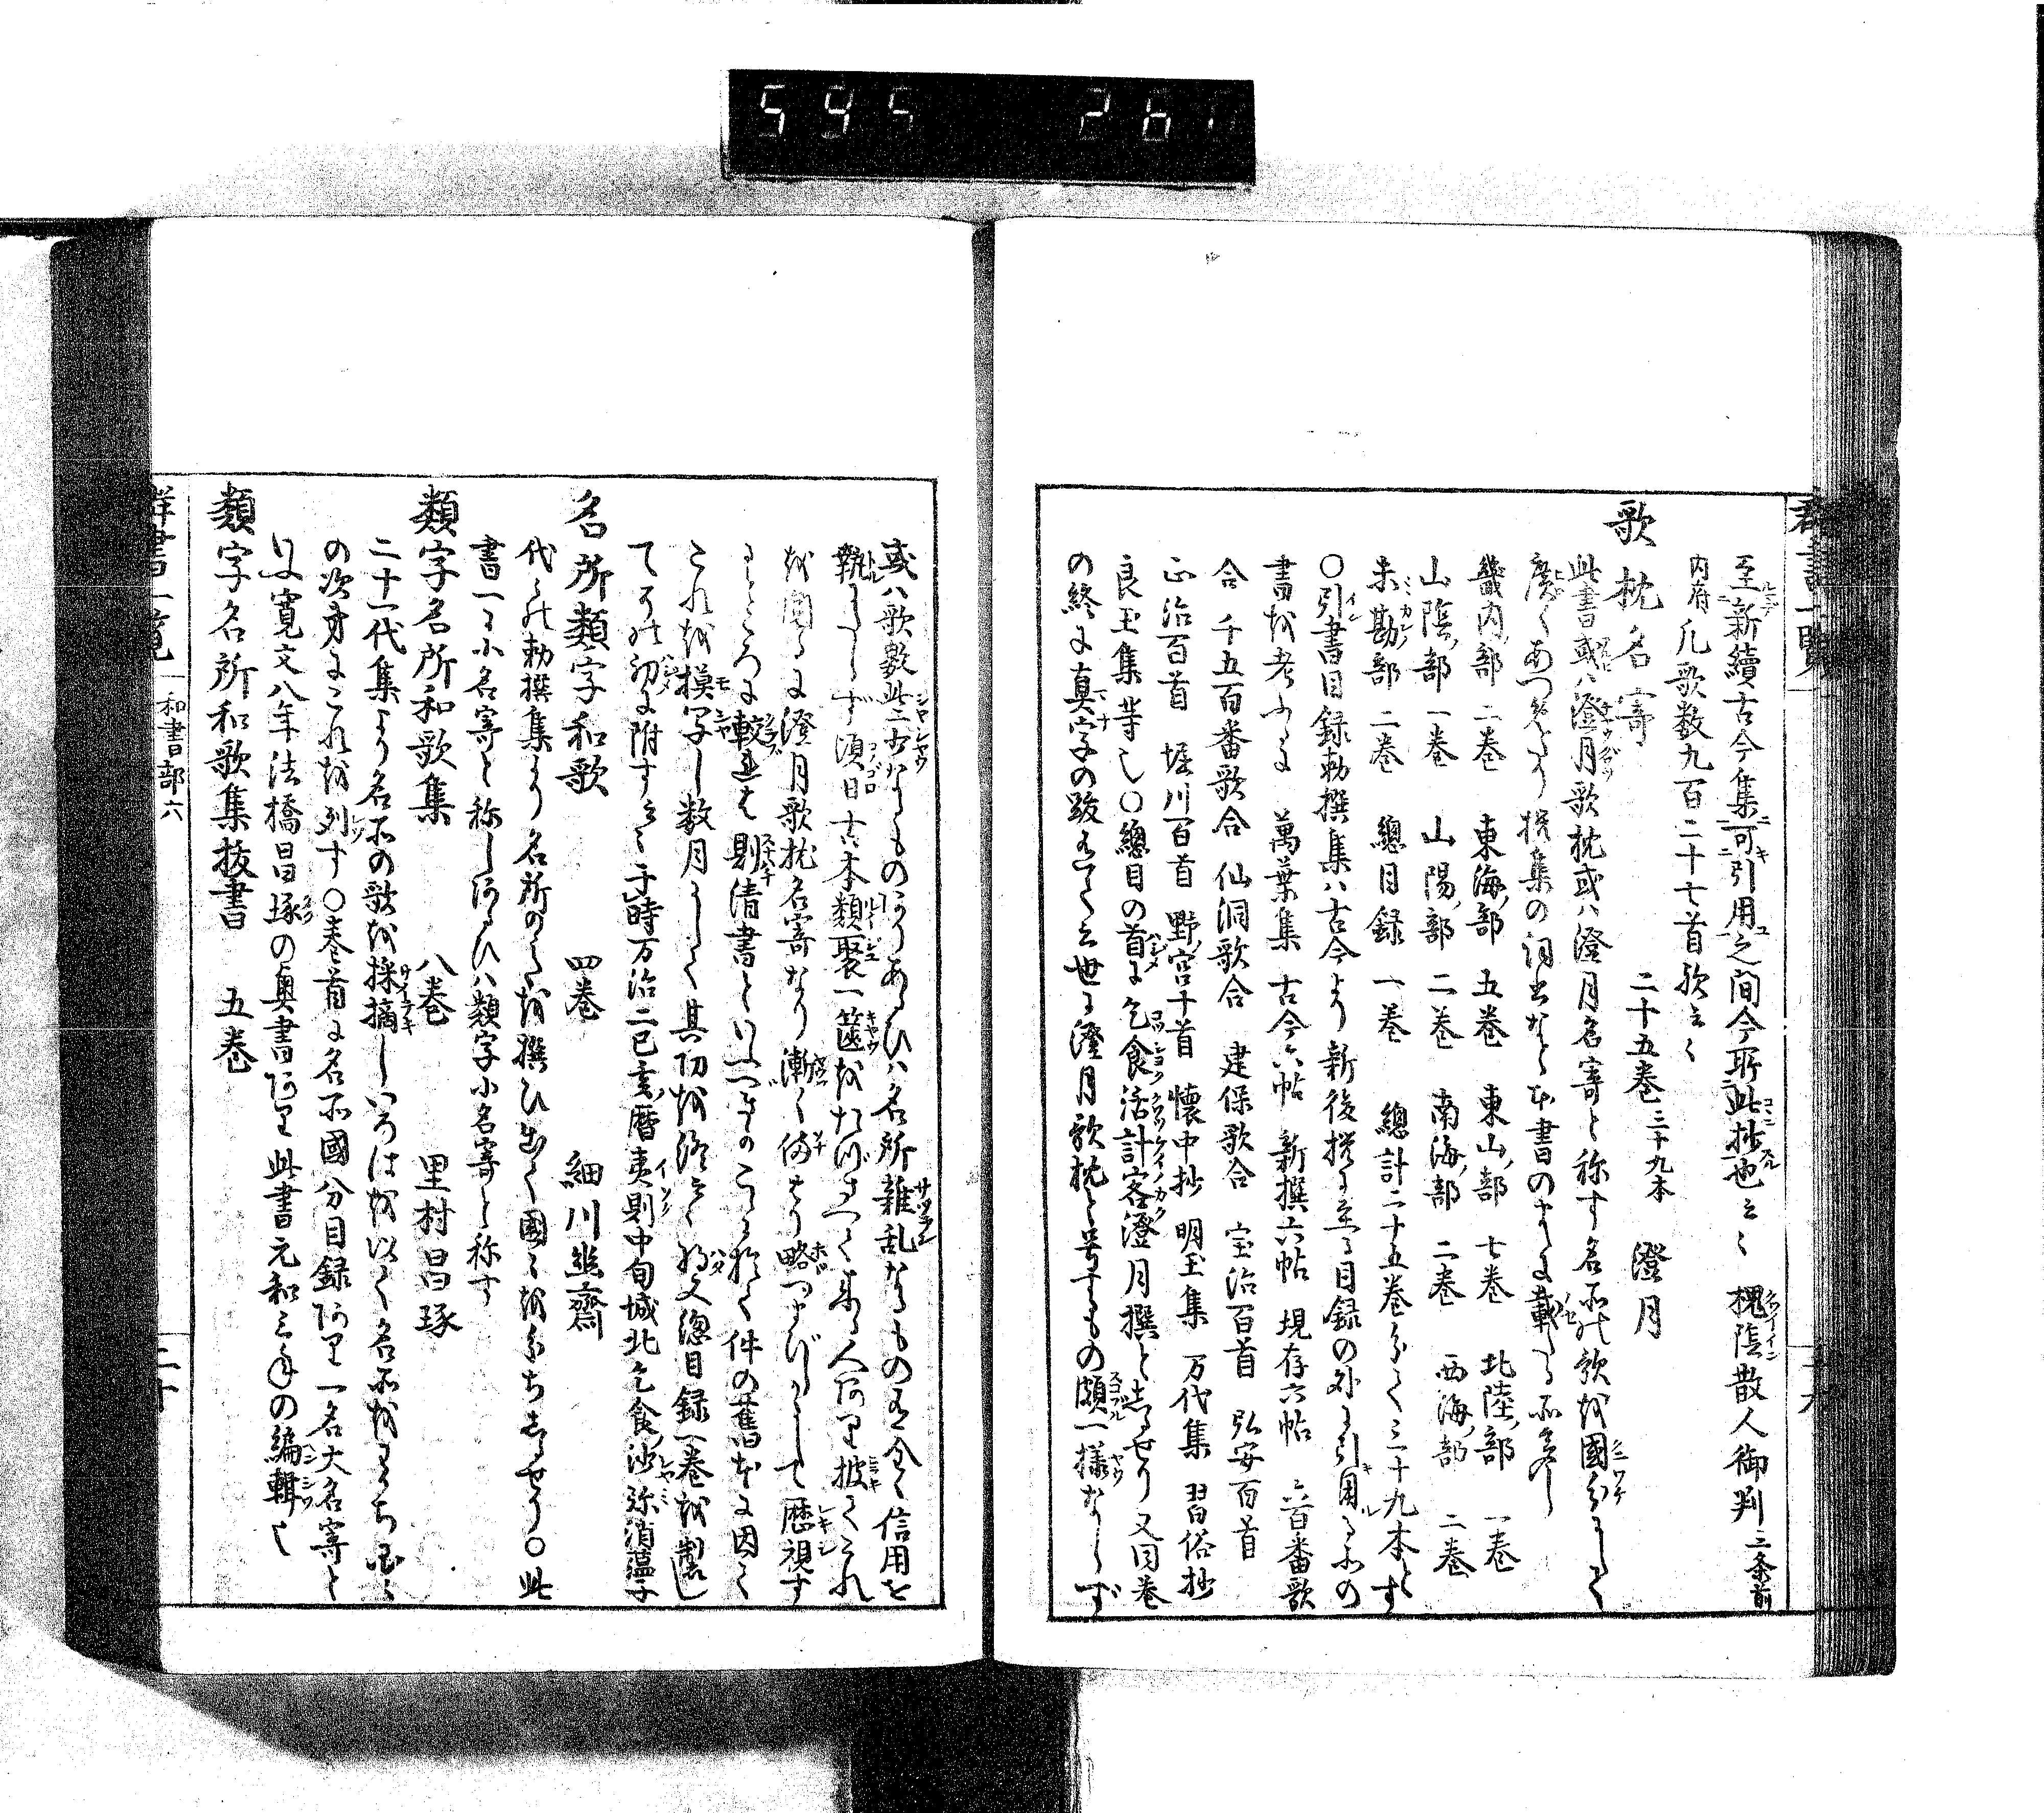 545 261
群書一覧
至新續古今集可引用之間今所此抄也云々 槐陰散人御判 三条前
内府 凡歌数九百二十七首歟云々
歌枕名寄 二十五巻 三十九本 澄月
此書或ハ澄月歌枕或ハ澄月名寄と称す名所の歌を國分にして
廣くあつめたり撰集の詞書など本書のまゝに載たる所多し
畿内部 二巻 東海部 五巻 東山部 七巻 北陸部 一巻
山陰部 一巻 山陽部 二巻 南海部 二巻 西海部 二巻
未勘部 二巻 總目録 一巻 總計二十五巻分て三十九本とす
〇引書目録勅撰集ハ古今より新後撰に至る目録の外に引用る所の
書を考ふるに 萬葉集 古今六帖 新撰六帖 現存六帖 六百番歌
合 千五百番歌合 仙洞歌合 建保歌合 宝治百首 弘安百首
正治百首 堀川百首 野宮千首 懐中抄 明玉集 万代集 習俗抄
良玉集等也〇總目の首に乞食活計客澄月撰としるせり又同巻
の終に真字の跋ありて云世に澄月歌枕と号するもの頗一様ならず
或ハ歌数此ニ少なきものありあるひハ名所雑乱なるもの有全く信用を
執にたらず須日古本類聚一篋をたづさへて来る人あり披てこれ
を閲るに澄月歌枕名寄なり漸く備はり略つまびらかにして歴視す
るところに較連は則清書といつつべきのこゝに於て件の舊本に因て
これを摸写し数月にして其功を終て又總目録一巻を製し
てこの初に附すと云々于時万治二己亥暦夷則中旬城北乞食沙弥消蘊子
名所類字和歌 四巻 細川幽齋
代々の勅撰集より名所のうたを撰ひ出て國々を分ちしるせり〇此
書一に小名寄と称しあるひハ類字小名寄と称す
類字名所和歌集 八巻 里村昌琢
二十一代集より名所の歌を採摘しいろはを以て名所をわかち國々
の次第にこれを列す〇巻首に名所國分目録あり一名大名寄と
いふ寛文八年法橋昌琢の奥書あり此書元和三年の編輯也
類字名所和歌集抜書 五巻
群書一覧 和書部六 二十